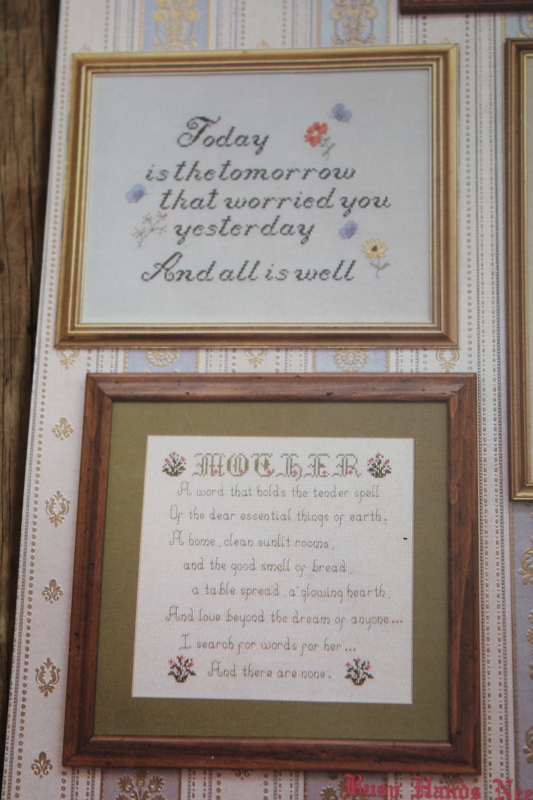 Today
is the tomorrow
that worried you
yesterday
And all is well
MOTHER
A word that holds the tender spell
Of the dear essential things of earth.
A home, clean sunlit rooms,
and the good smell of bread,
a table spread, a glowing hearth,
And love beyond the dream of anyone...
I search for words for her...
And there are none.
Busy Hands